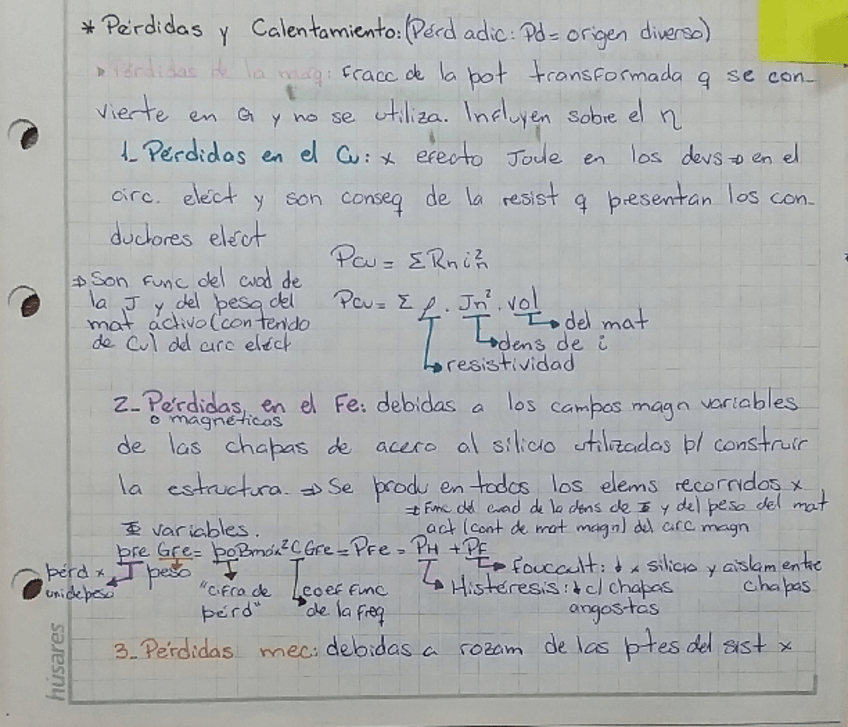 * Pérdidas y Calentamiento: (Pérd adic: Pd = origen diverso)
▸ Pérdidas de la maq: Fracc de la pot transformada q se con-
vierte en Q y no se utiliza. Influyen sobre el η
1_ Pérdidas en el Cu: x efecto Joule en los devs ⇒ en el
circ. eléct y son conseq de la resist q presentan los con-
ductores eléct
Pcu = ΣRn i²n
⇒ Son Func del cuad de
la J y del peso del
mat activo (contenido
de Cu) del circ eléct
Pcu = Σ ρ . Jn² . vol
del mat
dens de i
resistividad
2_ Pérdidas en el Fe: debidas a los campos magn variables
o magnéticos
de las chapas de acero al silicio utilizadas p/ construir
la estructura. ⇒ Se produ en todos los elems recorridos x
⇒ Func del cuad de la dens de Φ y del peso del mat
Φ variables.
act (cant de mat magn) del circ magn
pFe GFe = p₀Bmáx² C GFe = PFe = PH + PF
Foucault: ↓ x silicio y aislam entre
chapas
Histéresis: ↓ c/ chapas
angostas
pérd x
unidepeso
peso
"cifra de
pérd"
coef Func
de la freq
3_ Pérdidas mec: debidas a rozam de las ptes del sist x
húsares